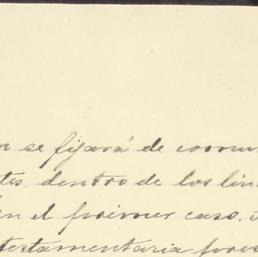 n se fijará de comun
tes dentro de los lin
en el primer caso,
testamentaria pres